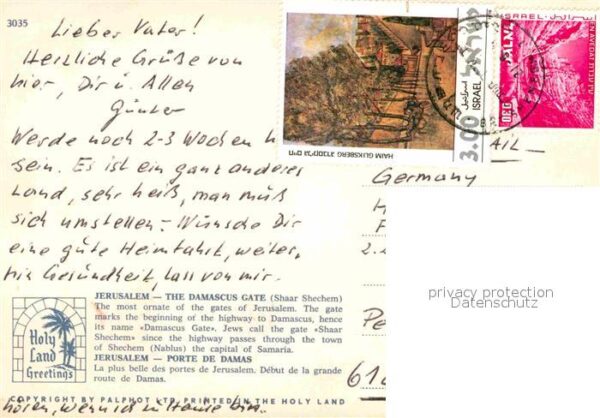 3035
Lieber Vater!
Herzliche Grüße von
hier, Dir u. Allen
Günter
Werde noch 2-3 Wochen h
sein. Es ist ein ganz anderes
Land, sehr heiß, man muß
sich umstellen. Wünsche Dir
eine gute Heimfahrt, weiter,
hin Gesundheit, lass von mir
hören, wenn ich in Hause bin.
JERUSALEM — THE DAMASCUS GATE (Shaar Shechem)
The most ornate of the gates of Jerusalem. The gate
marks the beginning of the highway to Damascus, hence
its name «Damascus Gate». Jews call the gate «Shaar
Shechem» since the highway passes through the town
of Shechem (Nablus) the capital of Samaria.
JERUSALEM — PORTE DE DAMAS
La plus belle des portes de Jerusalem. Début de la grande
route de Damas.
Holy
Land
Greetings
COPYRIGHT BY PALPHOT LTD. PRINTED IN THE HOLY LAND
HAIM GLIKSBERG חיים גליקסברג
3.00 ISRAEL اسرائيل ישראל
ISRAEL اسرائيل
EN AVEDAT עין עבדת
AIL
Germany
H
F
2.
Pe
61
privacy protection
Datenschutz